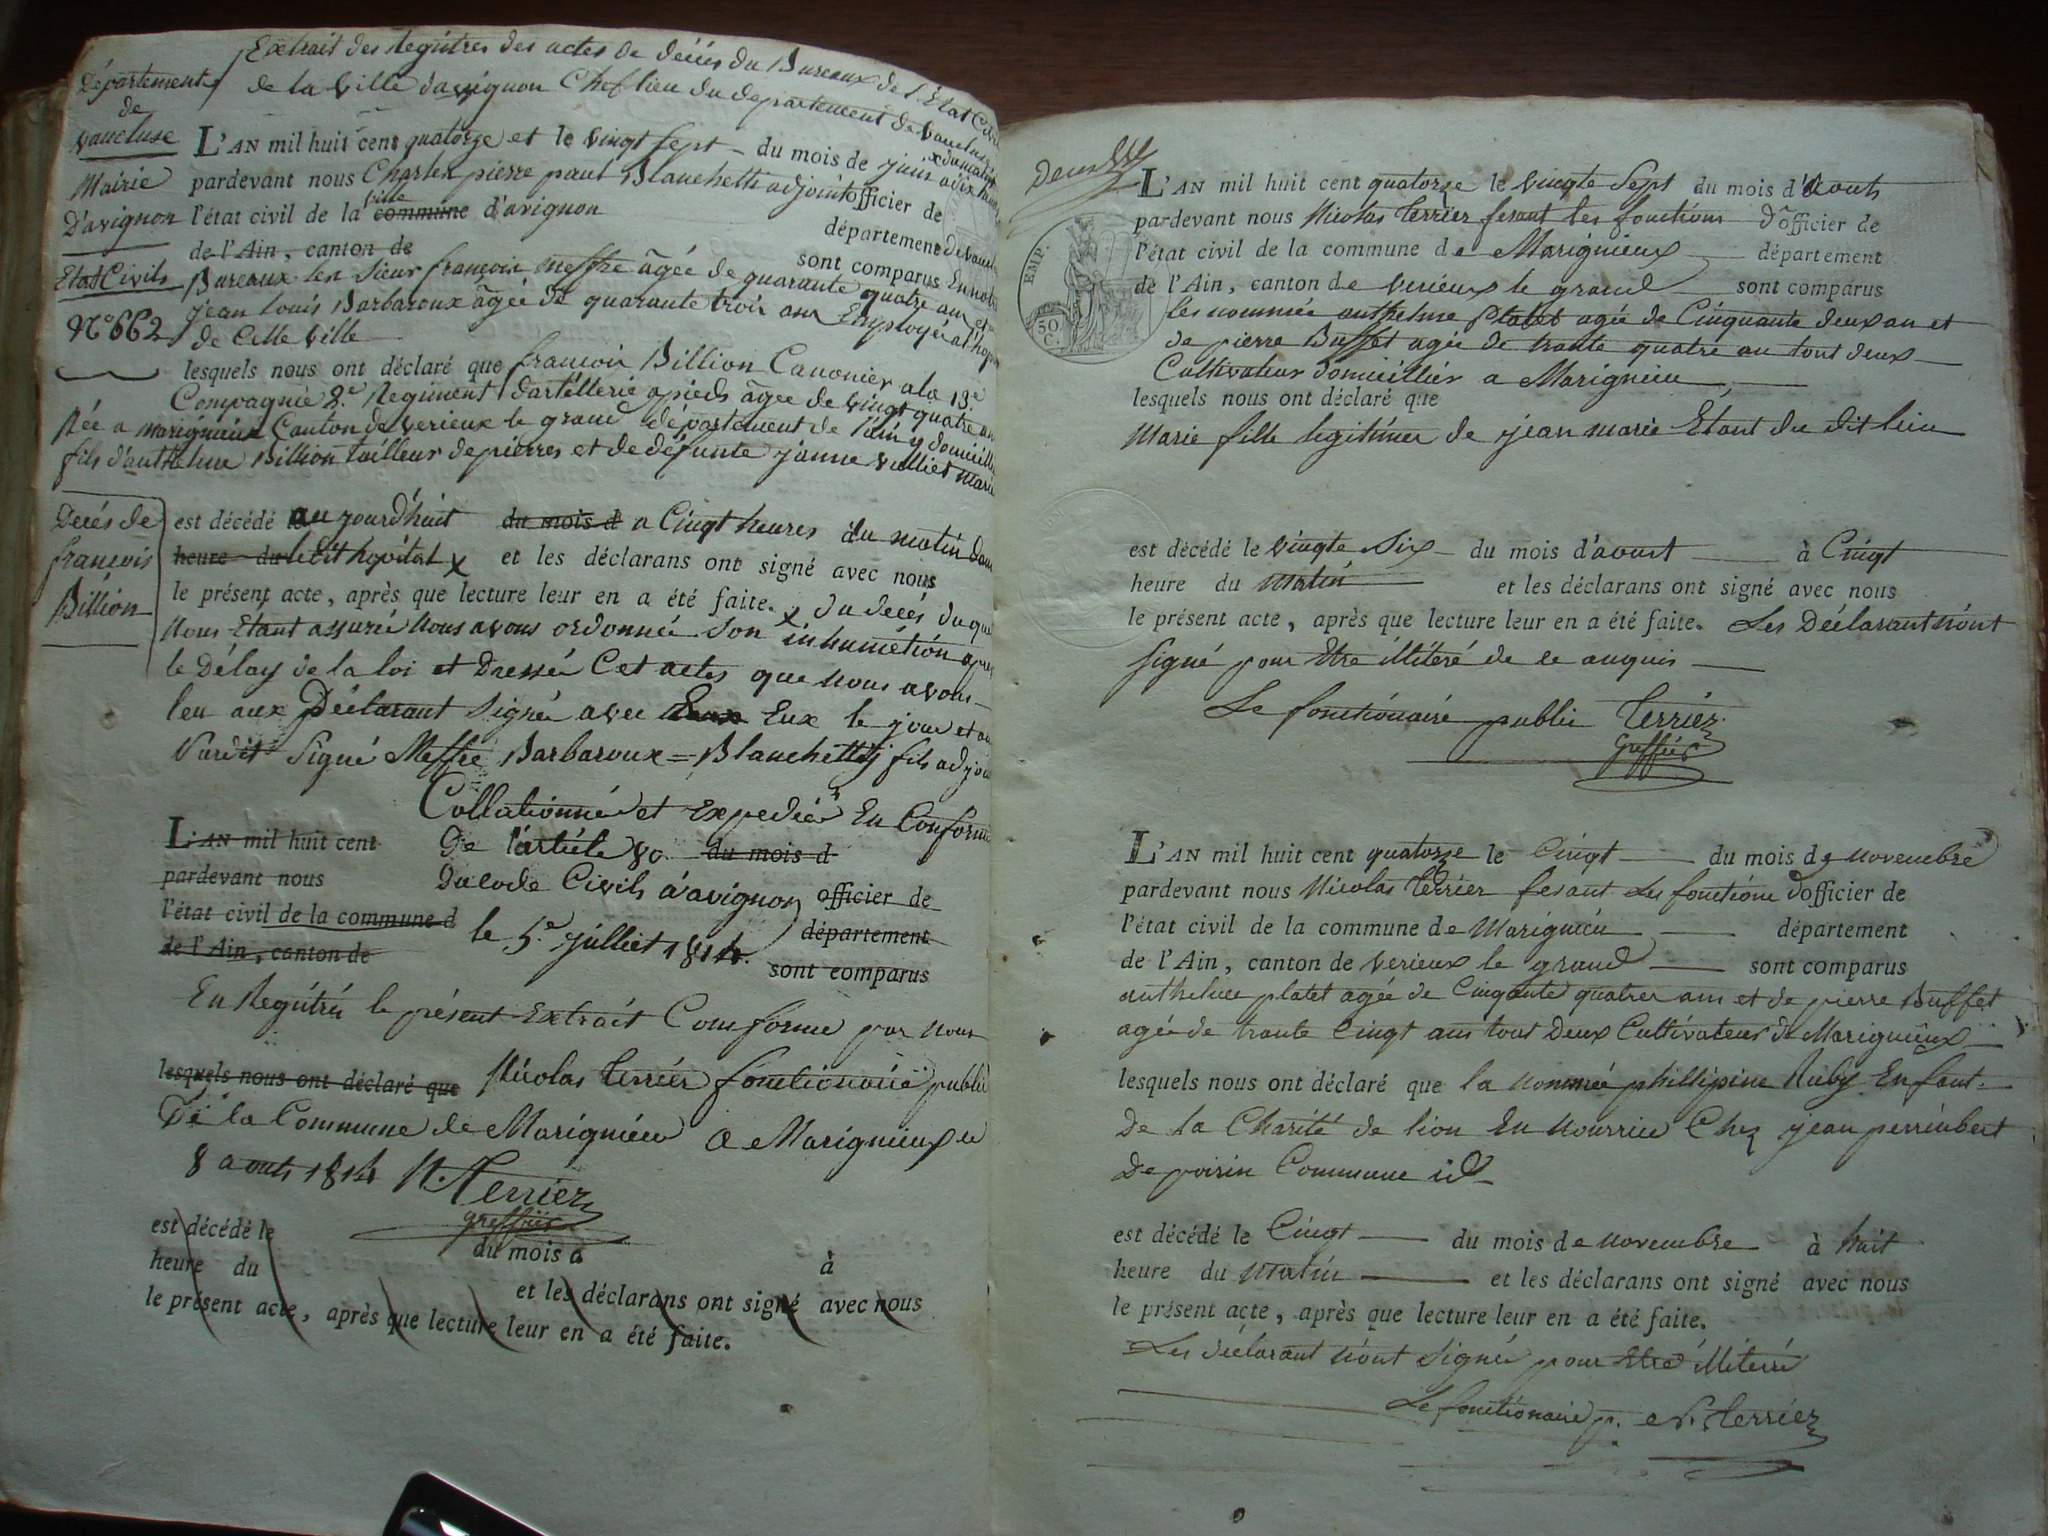 Extrait des Registres des actes de décès du Bureaux de l'Etat Civil
de la ville davignon Chef lieu du departement de vaucluse
Département
de
vaucluse
Mairie
D'avignon
Etat Civils
N° 662
L'AN mil huit cent quatorze et le vingt sept du mois de juin
pardevant nous Charles pierre paul Blanchetti adjoint officier de
l'état civil de la commune ville d'avignon département de
de l'Ain, canton de sont comparus En notre
Bureaux les sieur françois Meffre âgée de quarante quatre ans et
jean louis Barbaroux âgée de quarante trois ans Employé a l'hop
de Cette ville
lesquels nous ont déclaré que françois Billion Canonier a la 13e
Compagnie 2e Regiment dartillerie a pieds âgée de vingt quatre ans
Née a marignieux Canton de verieux le grand département de l'ain y domicilié
fils d'anthelme Billion tailleur de pierres et de défunte janne vulliet
Decés de
françois
Billion
est décédé le aujourd'huit du mois d a Cinqt heures du matin dans
heure du ledit hopital x et les déclarans ont signé avec nous
le présent acte, après que lecture leur en a été faite. x du decés duquel
Nous Etant assuré Nous avons ordonnée son inhumétion apres
le Délay de la loi et Dressée Cet actes que nous avons
leu aux Déclarant signée avec Eux le jour et an
Susdit Signé Meffre Barbaroux = Blanchetty fils adjoint
Collationné et Expedié En Conforme
L'AN mil huit cent De l'article 80 du mois d
pardevant nous Du code Civils a'avignon officier de
l'état civil de la commune d le 5e juilliet 1814. département
de l'Ain, canton de sont comparus
En Registré le présent Extrait Comforme par nous
lesquels nous ont déclaré que Nicolas terrier fonctionaire public
De la Commune de Marignieu a Marignieux le
8 aouts 1814 N. Terrier
greffier
est décédé le du mois d à
heure du et les déclarans ont signé avec nous
le présent acte, après que lecture leur en a été faite.
EMP.
50
C.
L'AN mil huit cent quatorze le vingte sept du mois d'Aouts
pardevant nous Nicolas terrier fesant les fonctions d'officier de
l'état civil de la commune de Marignieux département
de l'Ain, canton de verieux le grand sont comparus
les nommée anthelme Platet agée de Cinquante deux an et
de pierre Buffet agée de trante quatre an tout deux
Cultivateur domicillier a Marignieu
lesquels nous ont déclaré que
Marie fille legitimer de jean marie Etant du dit lieu
est décédé le vingte Six du mois d'aoust à Cinqt
heure du matin et les déclarans ont signé avec nous
le présent acte, après que lecture leur en a été faite. Les Déclarant n'ont
signé pour Etre illiteré de ce anquis
Le fonctionaire public Terrier
greffier
L'AN mil huit cent quatorze le Cinqt du mois de novembre
pardevant nous Nicolas terrier fesant Les fonctions d'officier de
l'état civil de la commune de Marignieu département
de l'Ain, canton de verieux le grand sont comparus
anthelme platet agée de Cinqante quatrer ans et de pierre Buffet
agée de trante Cinqt ans tout Deux Cultivateur de Marignieux
lesquels nous ont déclaré que la nommée phillipine Ruby Enfant
De la Charité de lion En nourrice Chez jean perrinbert
De poisin Commune id
est décédé le Cinqt du mois de novembre à huit
heure du matin et les déclarans ont signé avec nous
le présent acte, après que lecture leur en a été faite.
Les déclarant n'ont signé pour Etre illiteré
Le fonctionaire p. N. Terrier